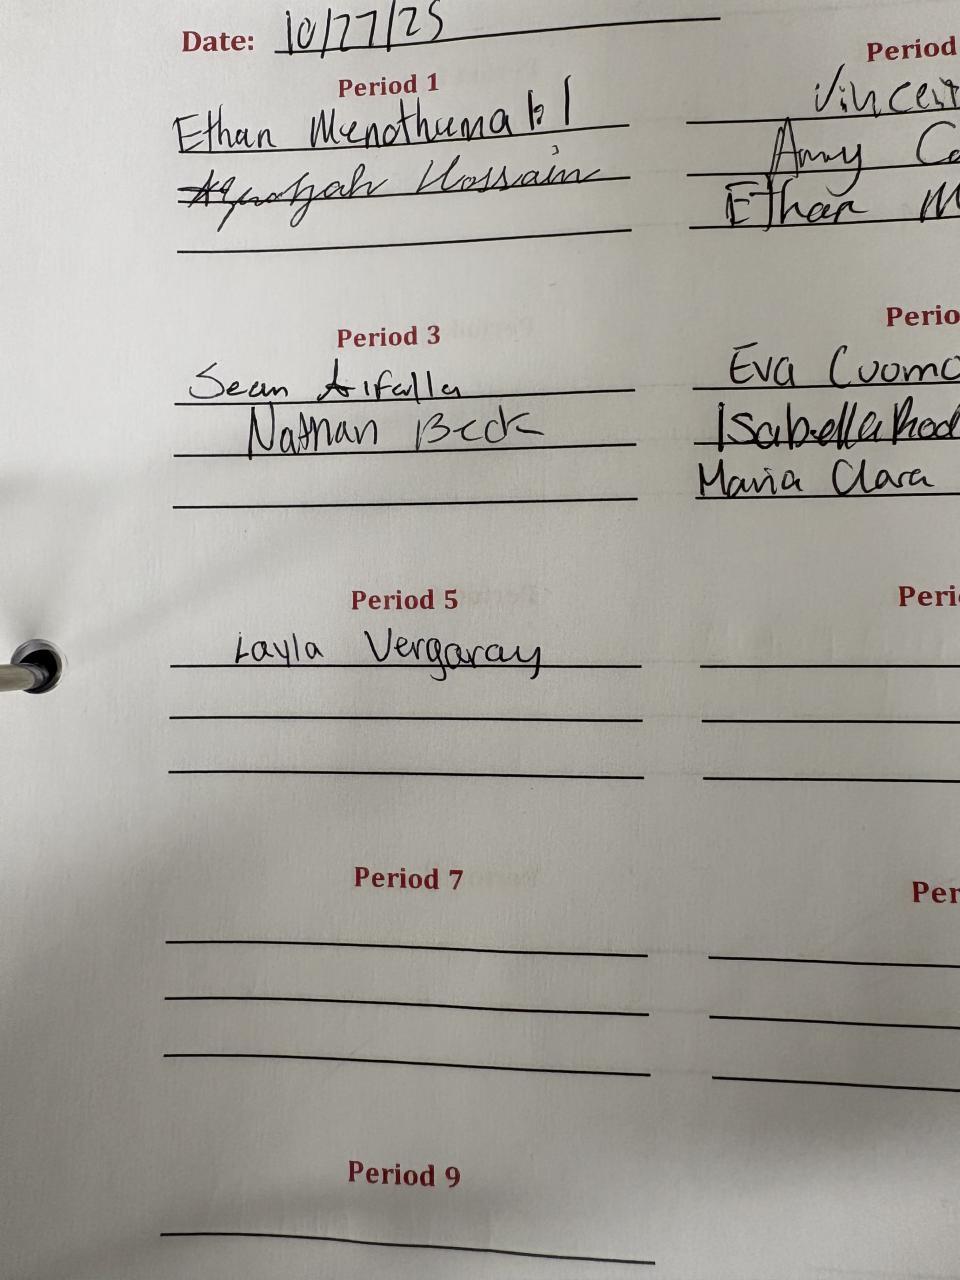 Date: 10/27/25
Period 1
Ethan
Hossain
Period
Vincent
Amy Co
Ethan M
Period 3
Sean
Nathan Beck
Perio
Eva Cuomo
Isabella Rod
Maria Clara
Period 5
Layla Vergaray
Peri
Period 7
Per
Period 9